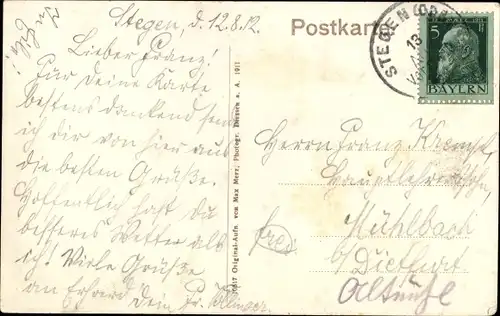 Stegen, d. 12.8.12.
Lieber Franz!
Für Deine Karte
bestens dankend sende
ich dir von hier aus
die besten Grüße.
Hoffentlich hast du
besseres Wetter als
ich! Viele Grüße
an Erhard Dein Fr.
10617 Original-Aufn. von Max Merz, Photogr. Diessen a. A. 1911
Postkarte
STEGEN
13
5
BAYERN
Herrn Franz
Hauptlehrerssohn,
Mühlbach
b/ Dietfurt
Altmühl